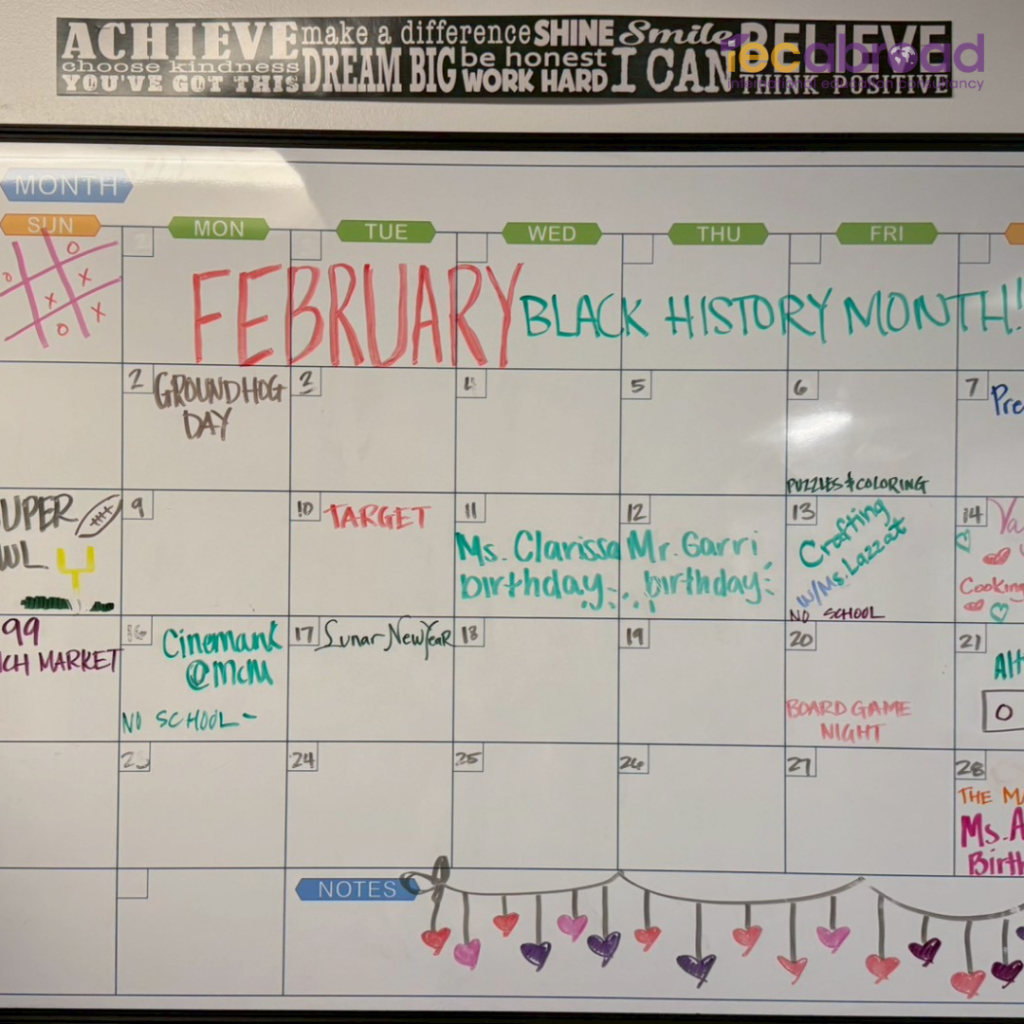 ACHIEVE make a difference SHINE Smile BELIEVE
choose kindness be honest
YOU'VE GOT THIS DREAM BIG WORK HARD I CAN THINK POSITIVE
iecabroad
international education consultancy
MONTH
SUN MON TUE WED THU FRI
FEBRUARY BLACK HISTORY MONTH!
2 GROUNDHOG DAY
3
4
5
6 PUZZLES & COLORING
7
9
10 TARGET
11 Ms. Clarissa birthday
12 Mr. Garri birthday
13 Crafting w/Ms. Lazzat
NO SCHOOL
14
99
MARKET
16 Cinemark @MCM
NO SCHOOL -
17 Lunar New Year
18
19
20 BOARD GAME NIGHT
21
O
23
24
25
26
27
28
THE
Ms.
NOTES